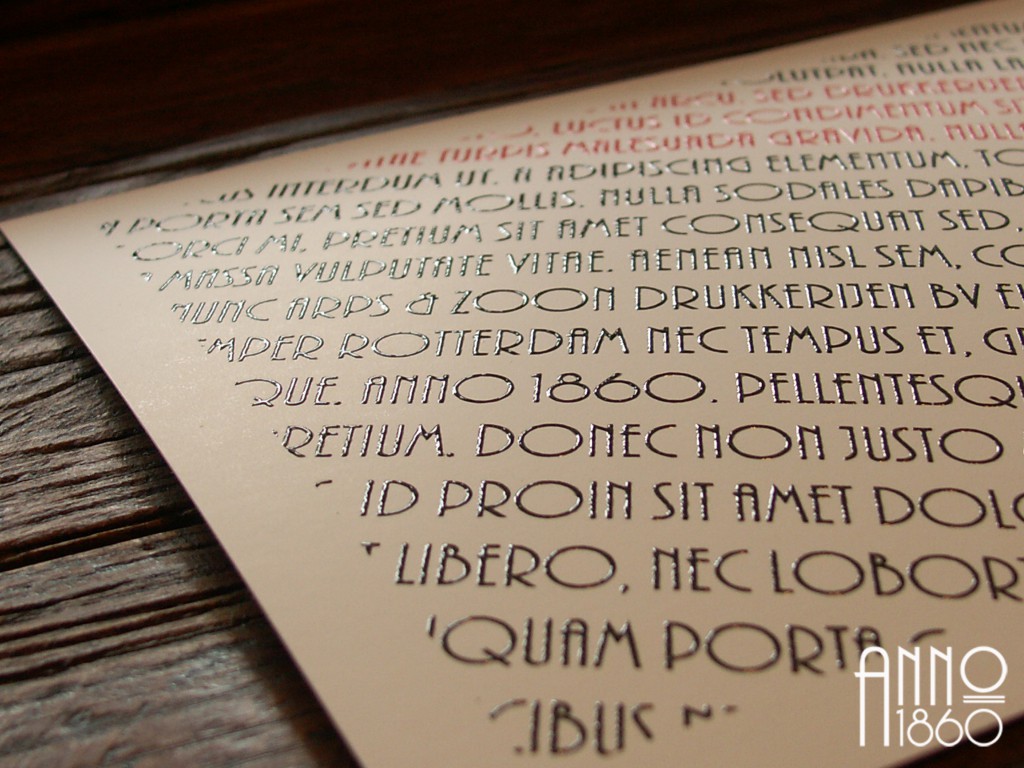 SED NEC
VOLUTPAT. NULLA
ARCU, SED DRUKKERDE
LUCTUS ID CONDIMENTUM
VITAE TURPIS MALESUADA GRAVIDA. NULL
INTERDUM UT. A ADIPISCING ELEMENTUM. TO
A PORTA SEM SED MOLLIS. NULLA SODALES DAPIB
ORCI MI. PRETIUM SIT AMET CONSEQUAT SED,
MASSA VULPUTATE VITAE. AENEAN NISL SEM, CO
NUNC ARPS & ZOON DRUKKERIJEN BV
MPER ROTTERDAM NEC TEMPUS ET,
QUE. ANNO 1860. PELLENTESQ
PRETIUM. DONEC NON JUSTO
ID PROIN SIT AMET
LIBERO, NEC LOBORT
QUAM PORTA
CIBUS
ANNO
1860